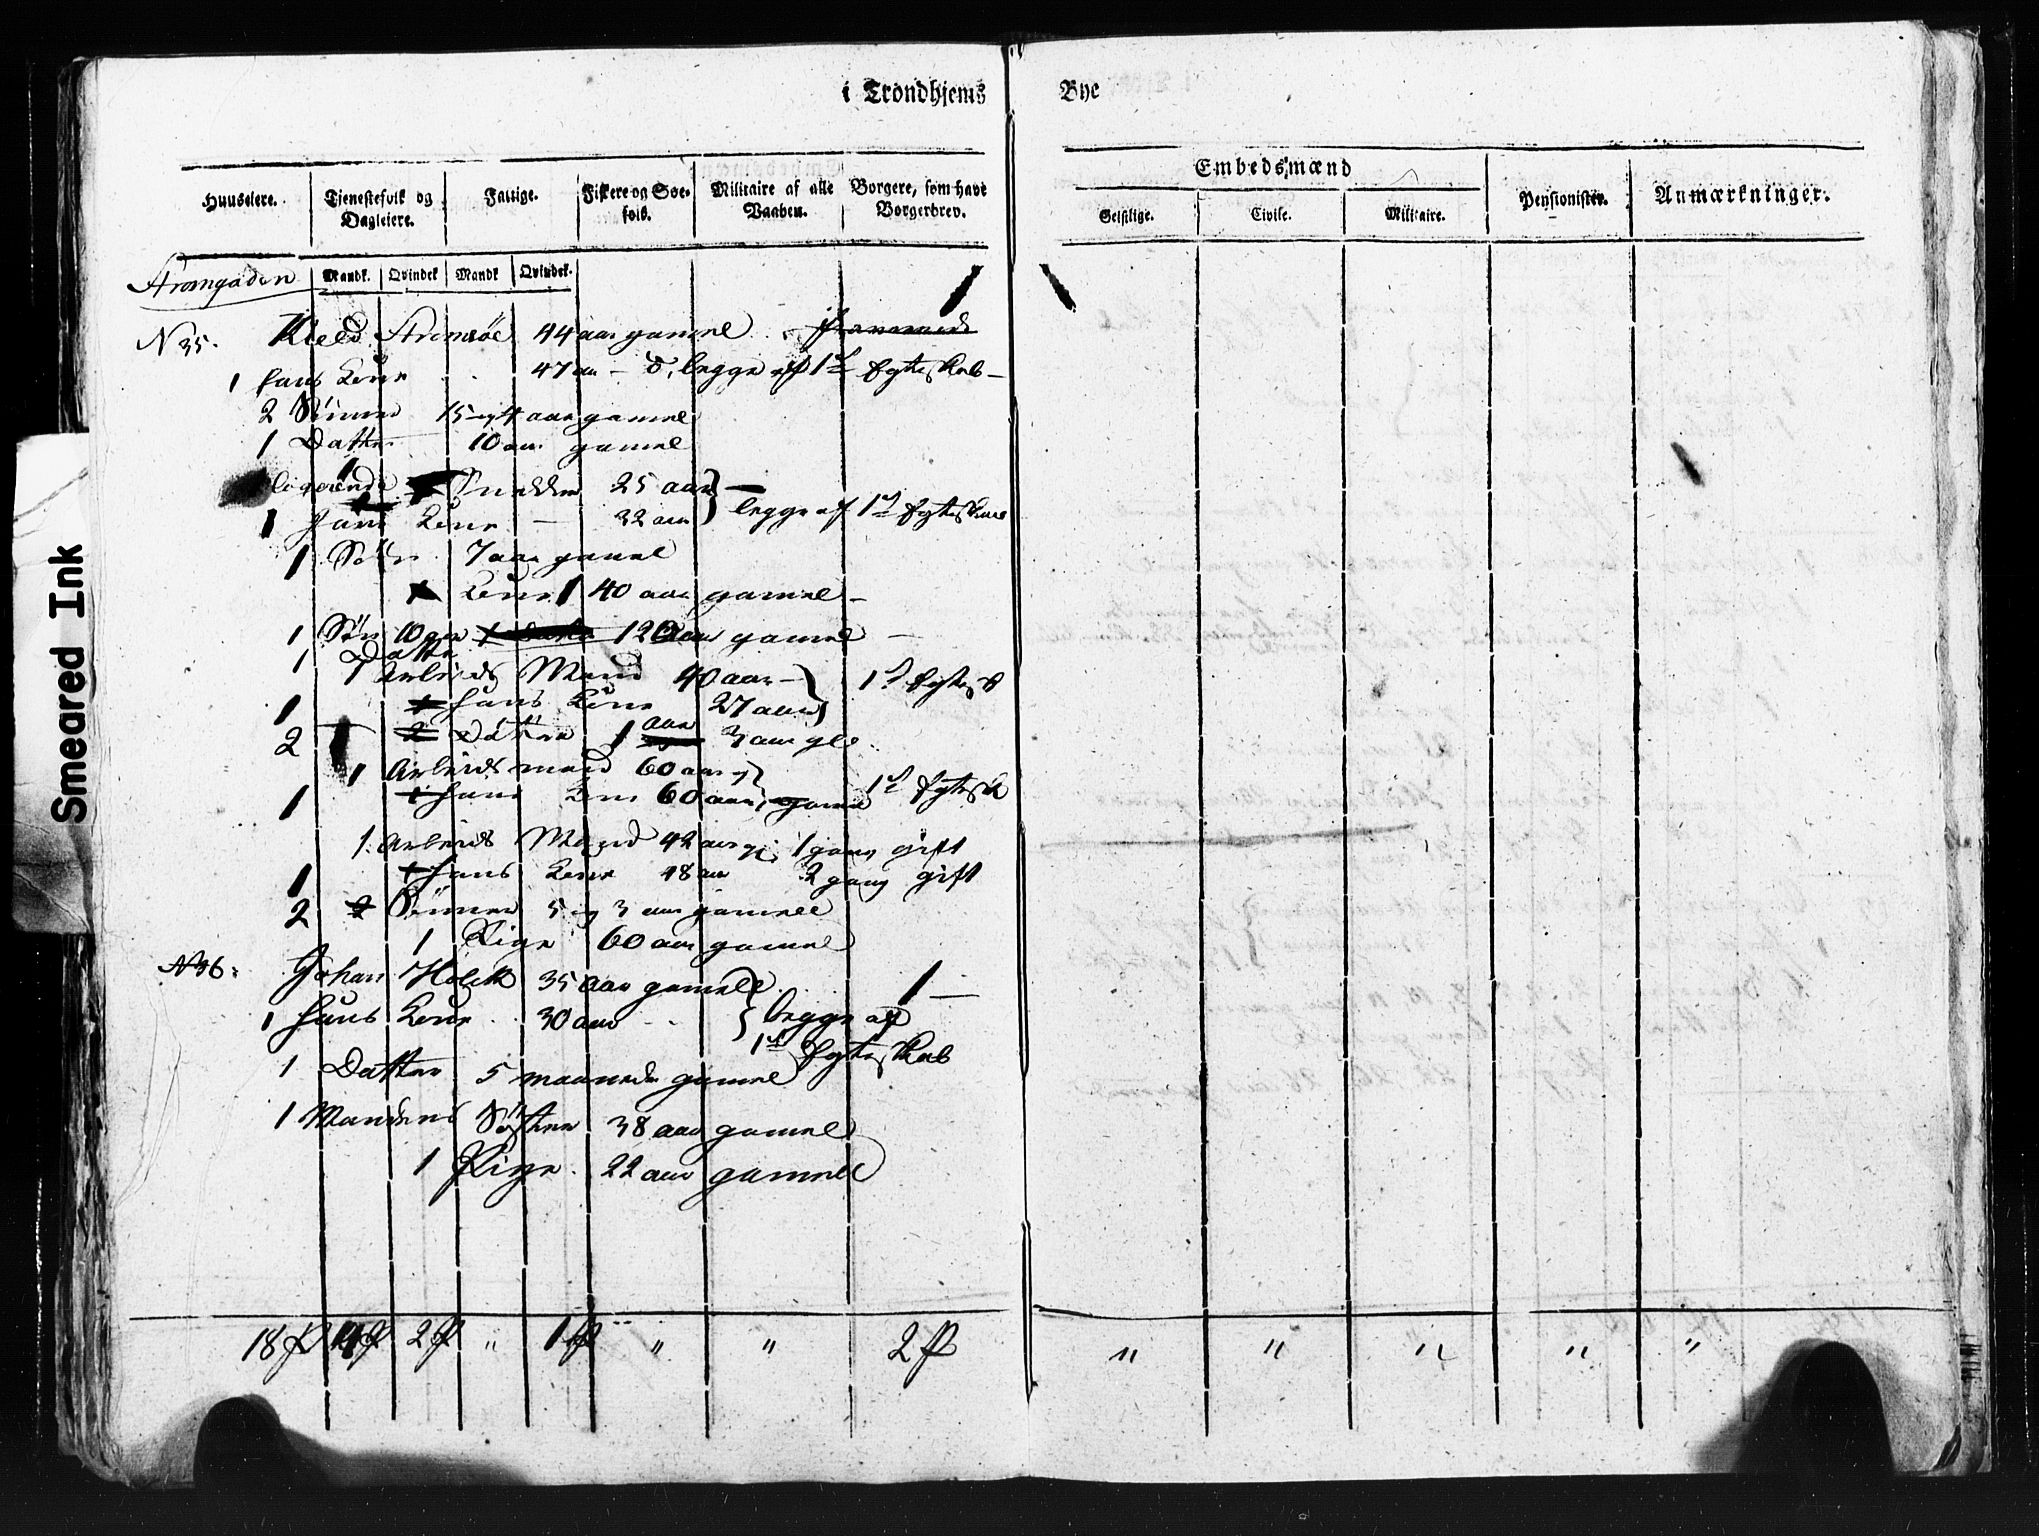 i Trondhjems Bye
Huuseiere. Tjenestefolk og Dagleiere. Fattige. Fiskere og Søe-folk. Militaire af alle Vaaben. Borgere, som have Borgerbrev. Embedsmænd Pensionister. Anmærkninger.
Geistlige. Civile. Militaire.
Mandk. Qvindek Mandk Qvindek.
Strømgaden
N 35. Kield Strømsøe 44 aar gamel
1 hans Kone 47 aar - D, begge af 1te Egteskab -
2 Sönner 15 og 4 aar gamel
1 Datter 10 aar gamel
1
logerende Snedker 25 aar
1 hans Kone - 32 aar begge af 1te Egteskab
1 Søn 7 aar gamel
Kone 1 40 aar gamel -
1 Søn 10 aar 12 aar gamel -
1 Datter
1 Arbeids Mand 40 aar - 1te Egtesk
1 hans Kone 27 aar
2 2 Döttre 1 aar 3 aar gle
1 Arbeidsmand 60 aar
1 hans Kone 60 aar, gamel 1te Egtesk
1. Arbeids Mand 42 aar g: 1 gang gift
1 hans Kone 48 aar 2 gang gift
2 2 Sönner 5 og 3 aar gamele
1 Pige 60 aar gamel
N 36: Johan Holck 35 aar gamel 1 -
1 hans Kone 30 aar - - begge af
1te Egteskab
1 Datter 5 maaneder gamel
1 Mandens Søster 38 aar gamel
1 Pige. 22 aar gamel
18 P 4 P 2 P " 1 P " " 2 P " " " " "
Smeared Ink